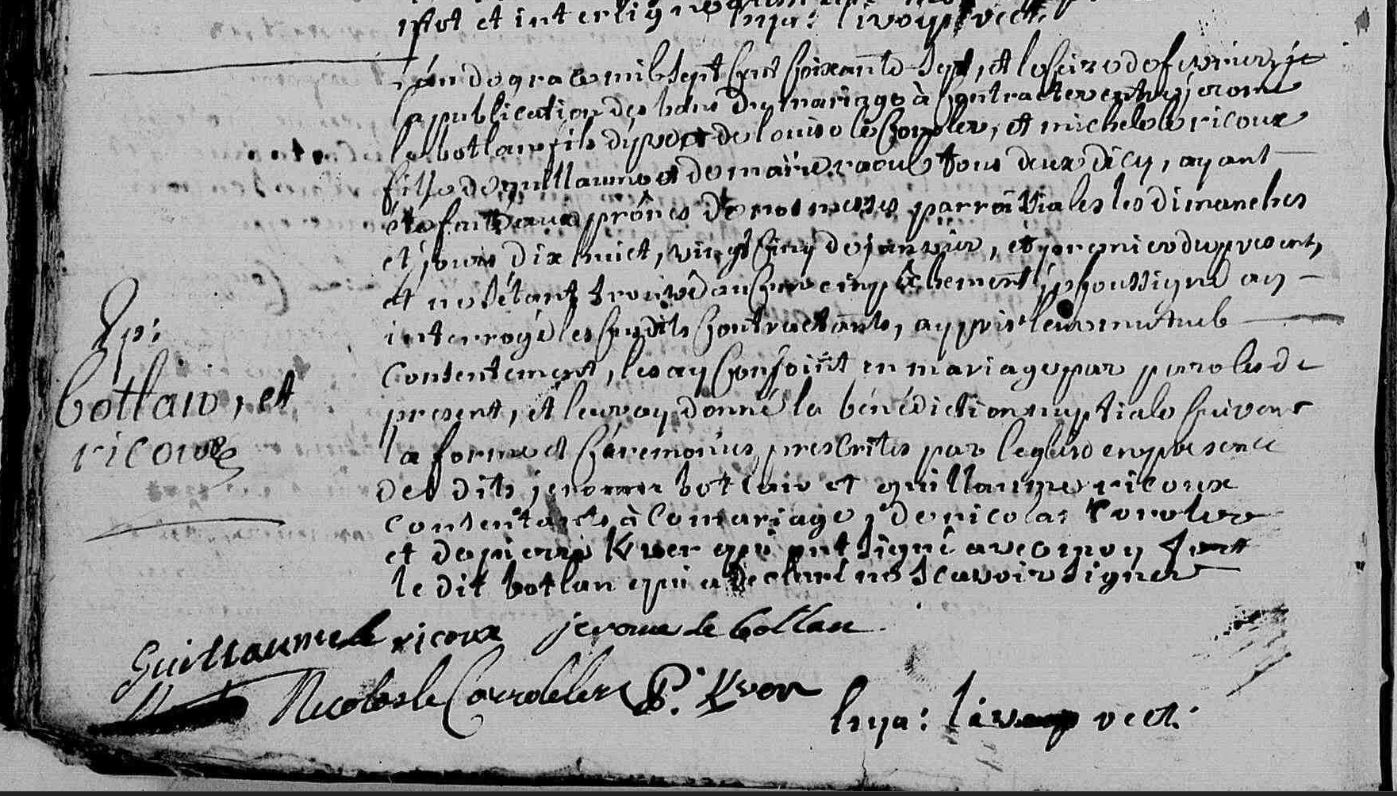 et interligne
l'an de grace mil sept cent soixante-sept, et le seize de fevrier, je
la publication des bans du mariage à contracter entre jerome
le botlan fils d'yves et de louise le Corroler, et michele le ricoux
fille de guillaume et de marie raoul tous deux d'icy, ayant
été faite aux prônes de nos messes parroissiales les dimanches
et jours dix huict, vingt cinq de janvier, et premier du present,
et ne s'étant trouvé aucun empêchement, je soussigné ay
interrogé les susdits contractants, ay pris leur mutuel
consentement, les ay conjoint en mariage par paroles de
present, et leur ay donné la bénédiction nuptiale suivant
la forme et ceremonies prescrites par l'eglise en presence
des dits jerome botlan et guillaume ricoux
consentants à ce mariage, de nicolas Coroler
et de pierre Kver qui ont signé avec moy
le dit botlan qui a declaré ne scavoir signer
botlan, et
ricoux
Guillaume le ricoux jerome le bottan
Nicolas le Corroller P. Kver
rect.